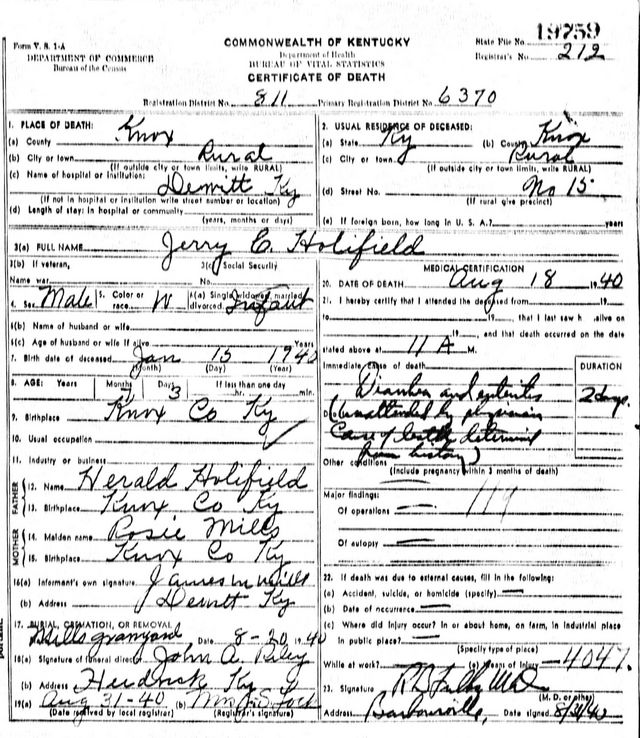 19759
Form V. S. 1-A
COMMONWEALTH OF KENTUCKY
State File No.
DEPARTMENT OF COMMERCE
Department of Health
Registrar's No. 212
Bureau of the Census
BUREAU OF VITAL STATISTICS
CERTIFICATE OF DEATH
Registration District No. 811 Primary Registration District No. 6370
1. PLACE OF DEATH:
(a) County Knox
(b) City or town Rural
(If outside city or town limits, write RURAL)
(c) Name of hospital or institution:
Dewitt Ky
(If not in hospital or institution write street number or location)
(d) Length of stay: in hospital or community
(years, months or days)
2. USUAL RESIDENCE OF DECEASED:
(a) State Ky (b) County Knox
(c) City or town Rural
(If outside city or town limits, write RURAL)
(d) Street No. No 15
(If rural give precinct)
(e) If foreign born, how long in U. S. A.? years
3(a) FULL NAME Jerry C. Holifield
3(b) If veteran, 3(c) Social Security
Name war No.
4. Sex Male 5. Color or race W 6(a) Single, widowed, married, divorced Infant
6(b) Name of husband or wife
6(c) Age of husband or wife if alive Years
7. Birth date of deceased Jan 15 1940
(Month) (Day) (Year)
8. AGE: Years Months 7 Days 3 If less than one day hr. min.
9. Birthplace Knox Co Ky
10. Usual occupation
11. Industry or business
FATHER
12. Name Herald Holifield
13. Birthplace Knox Co Ky
MOTHER
14. Maiden name Rosie Mills
15. Birthplace Knox Co Ky
16(a) Informant's own signature James M Mills
(b) Address Dewitt Ky
17. BURIAL, CREMATION, OR REMOVAL
Mills graveyard Date 8-20 1940
18(a) Signature of funeral director John A. Riley
(b) Address Hedrick Ky
19(a) Aug 31-40 (b) Mrs J. S. Lock
(Date received by local registrar) (Registrar's signature)
MEDICAL CERTIFICATION
20. DATE OF DEATH Aug 18 1940
21. I hereby certify that I attended the deceased from 19
to 19 , that I last saw h alive on
19 , and that death occurred on the date
stated above at 11 A M.
Immediate cause of death DURATION
Diarrhea and enteritis 2 days
(unattended by physician
Cause of death determined
from history)
Other conditions
(Include pregnancy within 3 months of death)
Major findings: 119
Of operations
Of autopsy
22. If death was due to external causes, fill in the following:
(a) Accident, suicide, or homicide (specify)
(b) Date of occurrence
(c) Where did injury occur? In or about home, on farm, in industrial place
In public place?
(Specify type of place)
While at work? (e) Means of injury 4047
23. Signature MD
(M. D. or other)
Address Barbourville, Date signed 8/31/40